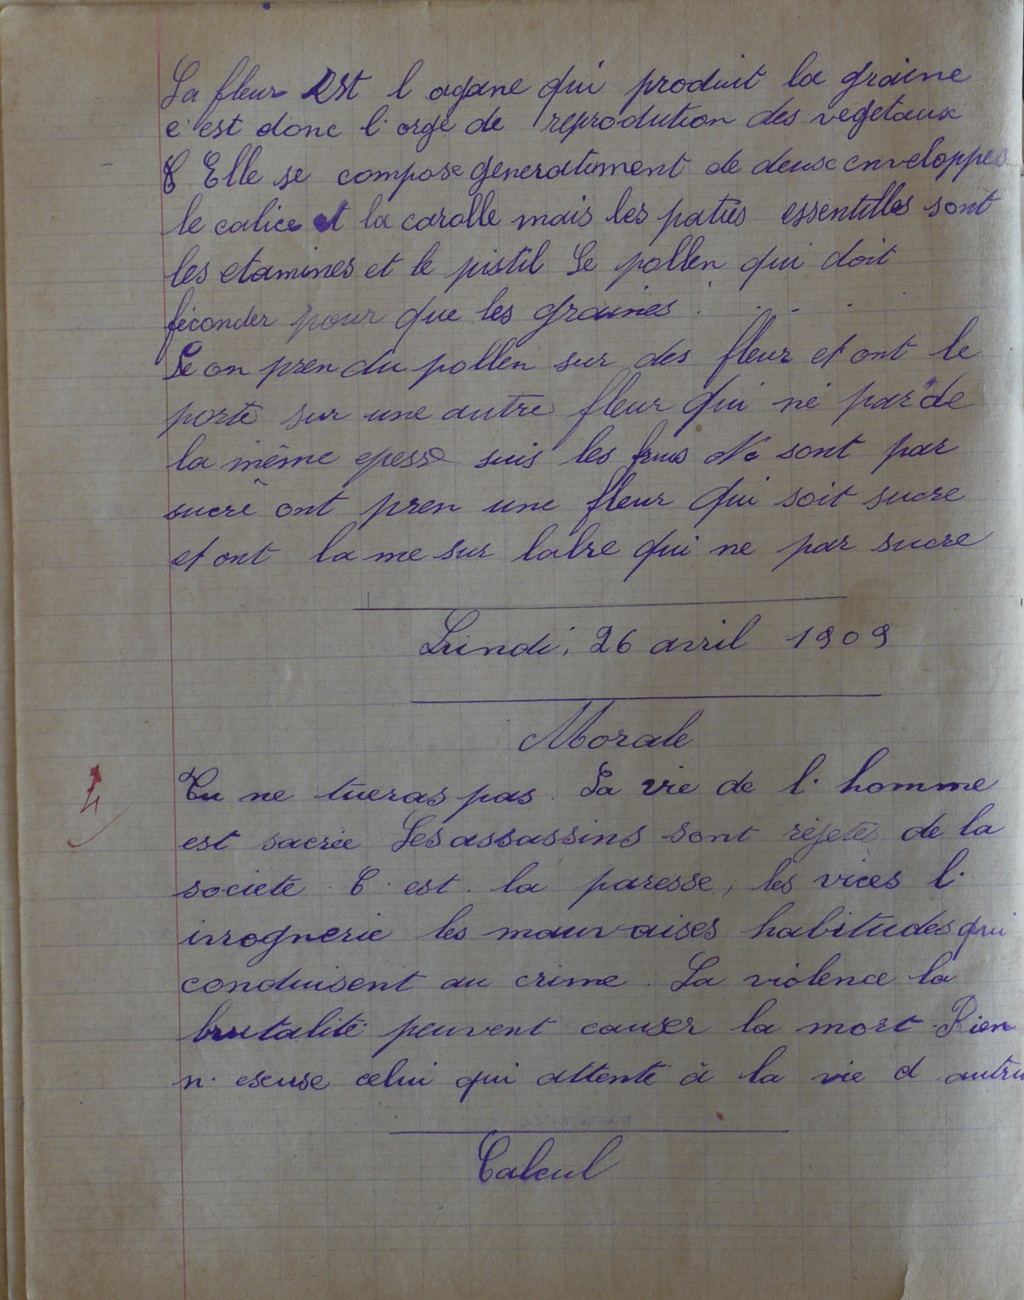 La fleur est l agane qui produit la graine
c'est donc l'orge de reprodution des vegetaux
Elle se compose generatument de deux enveloppes
le calice et la carolle mais les paties essentilles sont
les etamines et le pistil Le pollen qui doit
féconder pour que les graines . . . .
Le on pren du pollen sur des fleur et ont le
porte sur une autre fleur qui ne par de
la même epesse suis les frus Ne sont par
sucrê ont pren une fleur qui soit sucre
et ont la me sur labre qui ne par sucre
Lundi, 26 avril 1909
Morale
4
Tu ne tueras pas. La vie de l'homme
est sacrée Les assassins sont réjetés de la
societé. C'est la paresse, les vices l'
ivrognerie les mauvaises habitudes qui
conduisent au crime. La violence la
brutalité peuvent causer la mort. Rien
n'escuse celui qui attente à la vie d autru
Calcul